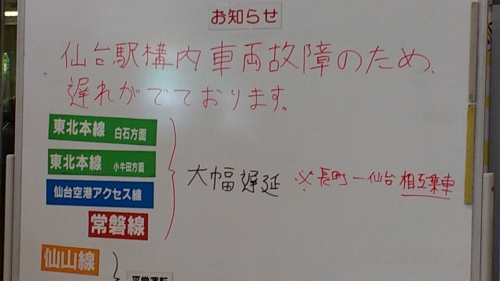 お知らせ
仙台駅構内車両故障のため、
遅れがでております。
東北本線 白石方面
東北本線 小牛田方面
仙台空港アクセス線
常磐線
大幅遅延 ※長町ー仙台 相互乗車
仙山線
平常運転